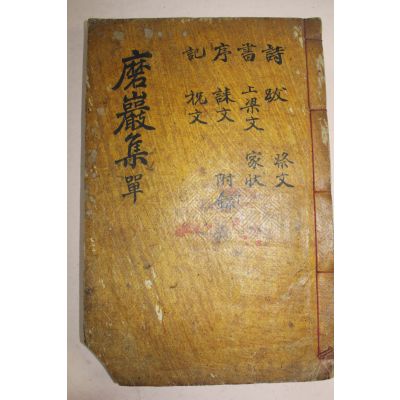 詩 跋 祭文
書 上梁文 家狀
序 誄文 附錄
記 祝文
磨巖集 單